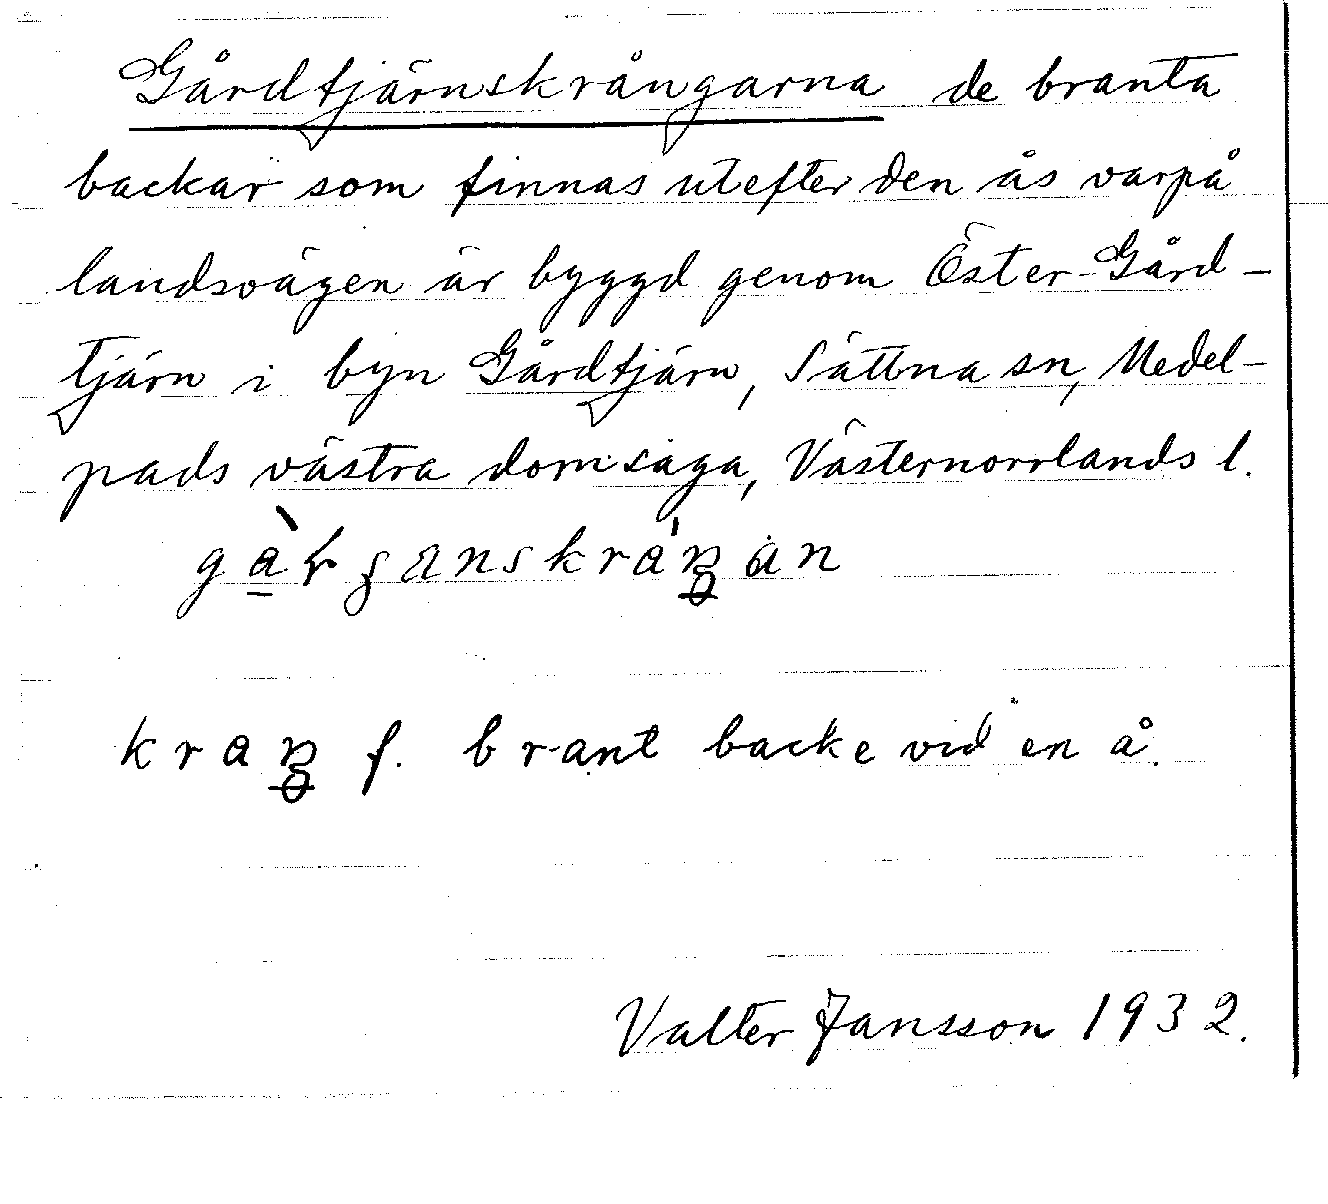 Gårdtjärnskrångarna de branta
backar som finnas utefter den ås varpå
landsvägen är byggd genom Öster-Gård-
tjärn i byn Gårdtjärn, Sättna sn, Medel-
pads västra domsaga, Västernorrlands l.
f. brant backe vid en å.
Valter Jansson 1932.